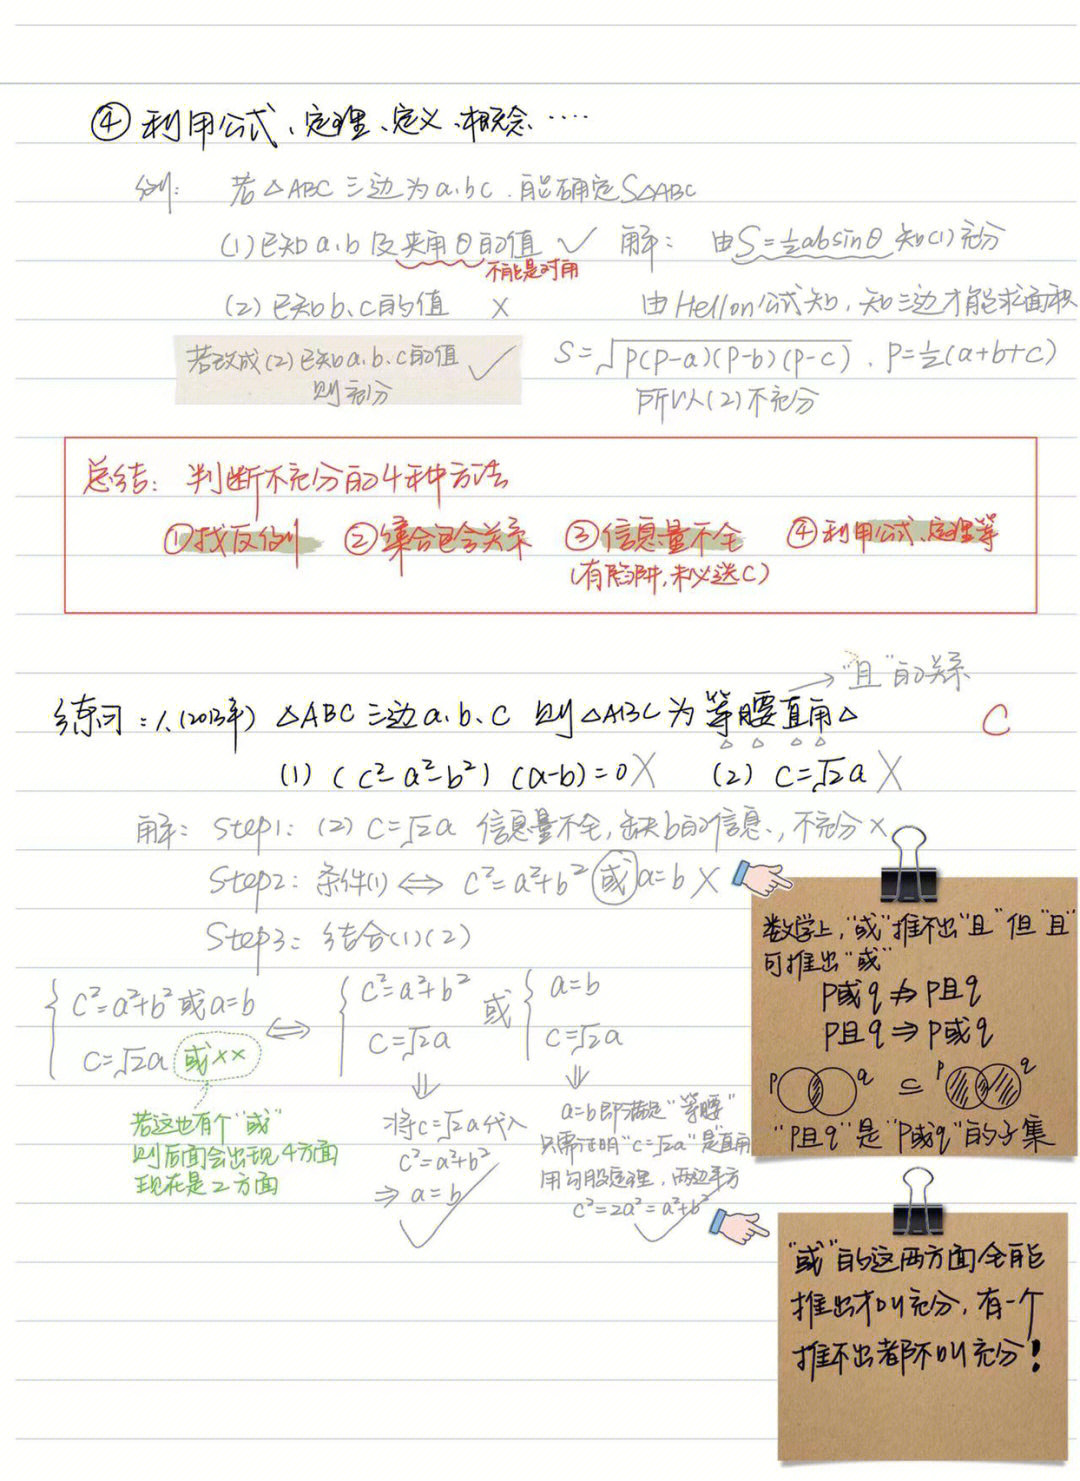 ④ 利用公式、定理、定义、概念……
例: 若△ABC三边为a、b、c. 能确定S△ABC
(1)已知a、b及夹角θ的值 ✓ 解: 由S=½absinθ知(1)充分
不能是对角
(2)已知b、c的值 × 由Hellon公式知,知三边才能求面积
若改成(2)已知a、b、c的值 ✓
则充分
S=√p(p-a)(p-b)(p-c) , p=½(a+b+c)
所以(2)不充分
总结: 判断不充分的4种方法
①找反例 ②集合包含关系 ③信息量不全 ④利用公式、定理等
(有陷阱,未必选C)
"且"的关系
练习:1.(2013年) △ABC三边a、b、c 则△ABC为等腰直角△ C
(1) (c²-a²-b²)(a-b)=0 × (2) c=√2a ×
解: Step1: (2) c=√2a 信息量不全,缺b的信息,不充分×
Step2: 条件(1) ⇔ c²=a²+b² 或 a=b ×
Step3: 结合(1)(2)
{ c²=a²+b²或a=b ⇔ { c²=a²+b² 或 { a=b
c=√2a 或×× c=√2a c=√2a
⇓ ⇓
若这也有个"或"
则后面会出现4方面
现在是2方面
将c=√2a代入
c²=a²+b²
⇒ a=b ✓
a=b即满足"等腰"
只需证明"c=√2a"是直角
用勾股定理,两边平方
c²=2a²=a²+b² ✓
数学上,"或"推不出"且"但"且"
可推出"或"
P或q ⇏ P且q
P且q ⇒ P或q
P q ⊆ P q
"P且q"是"P或q"的子集
"或"的这两方面全能
推出才叫充分,有一个
推不出都不叫充分!